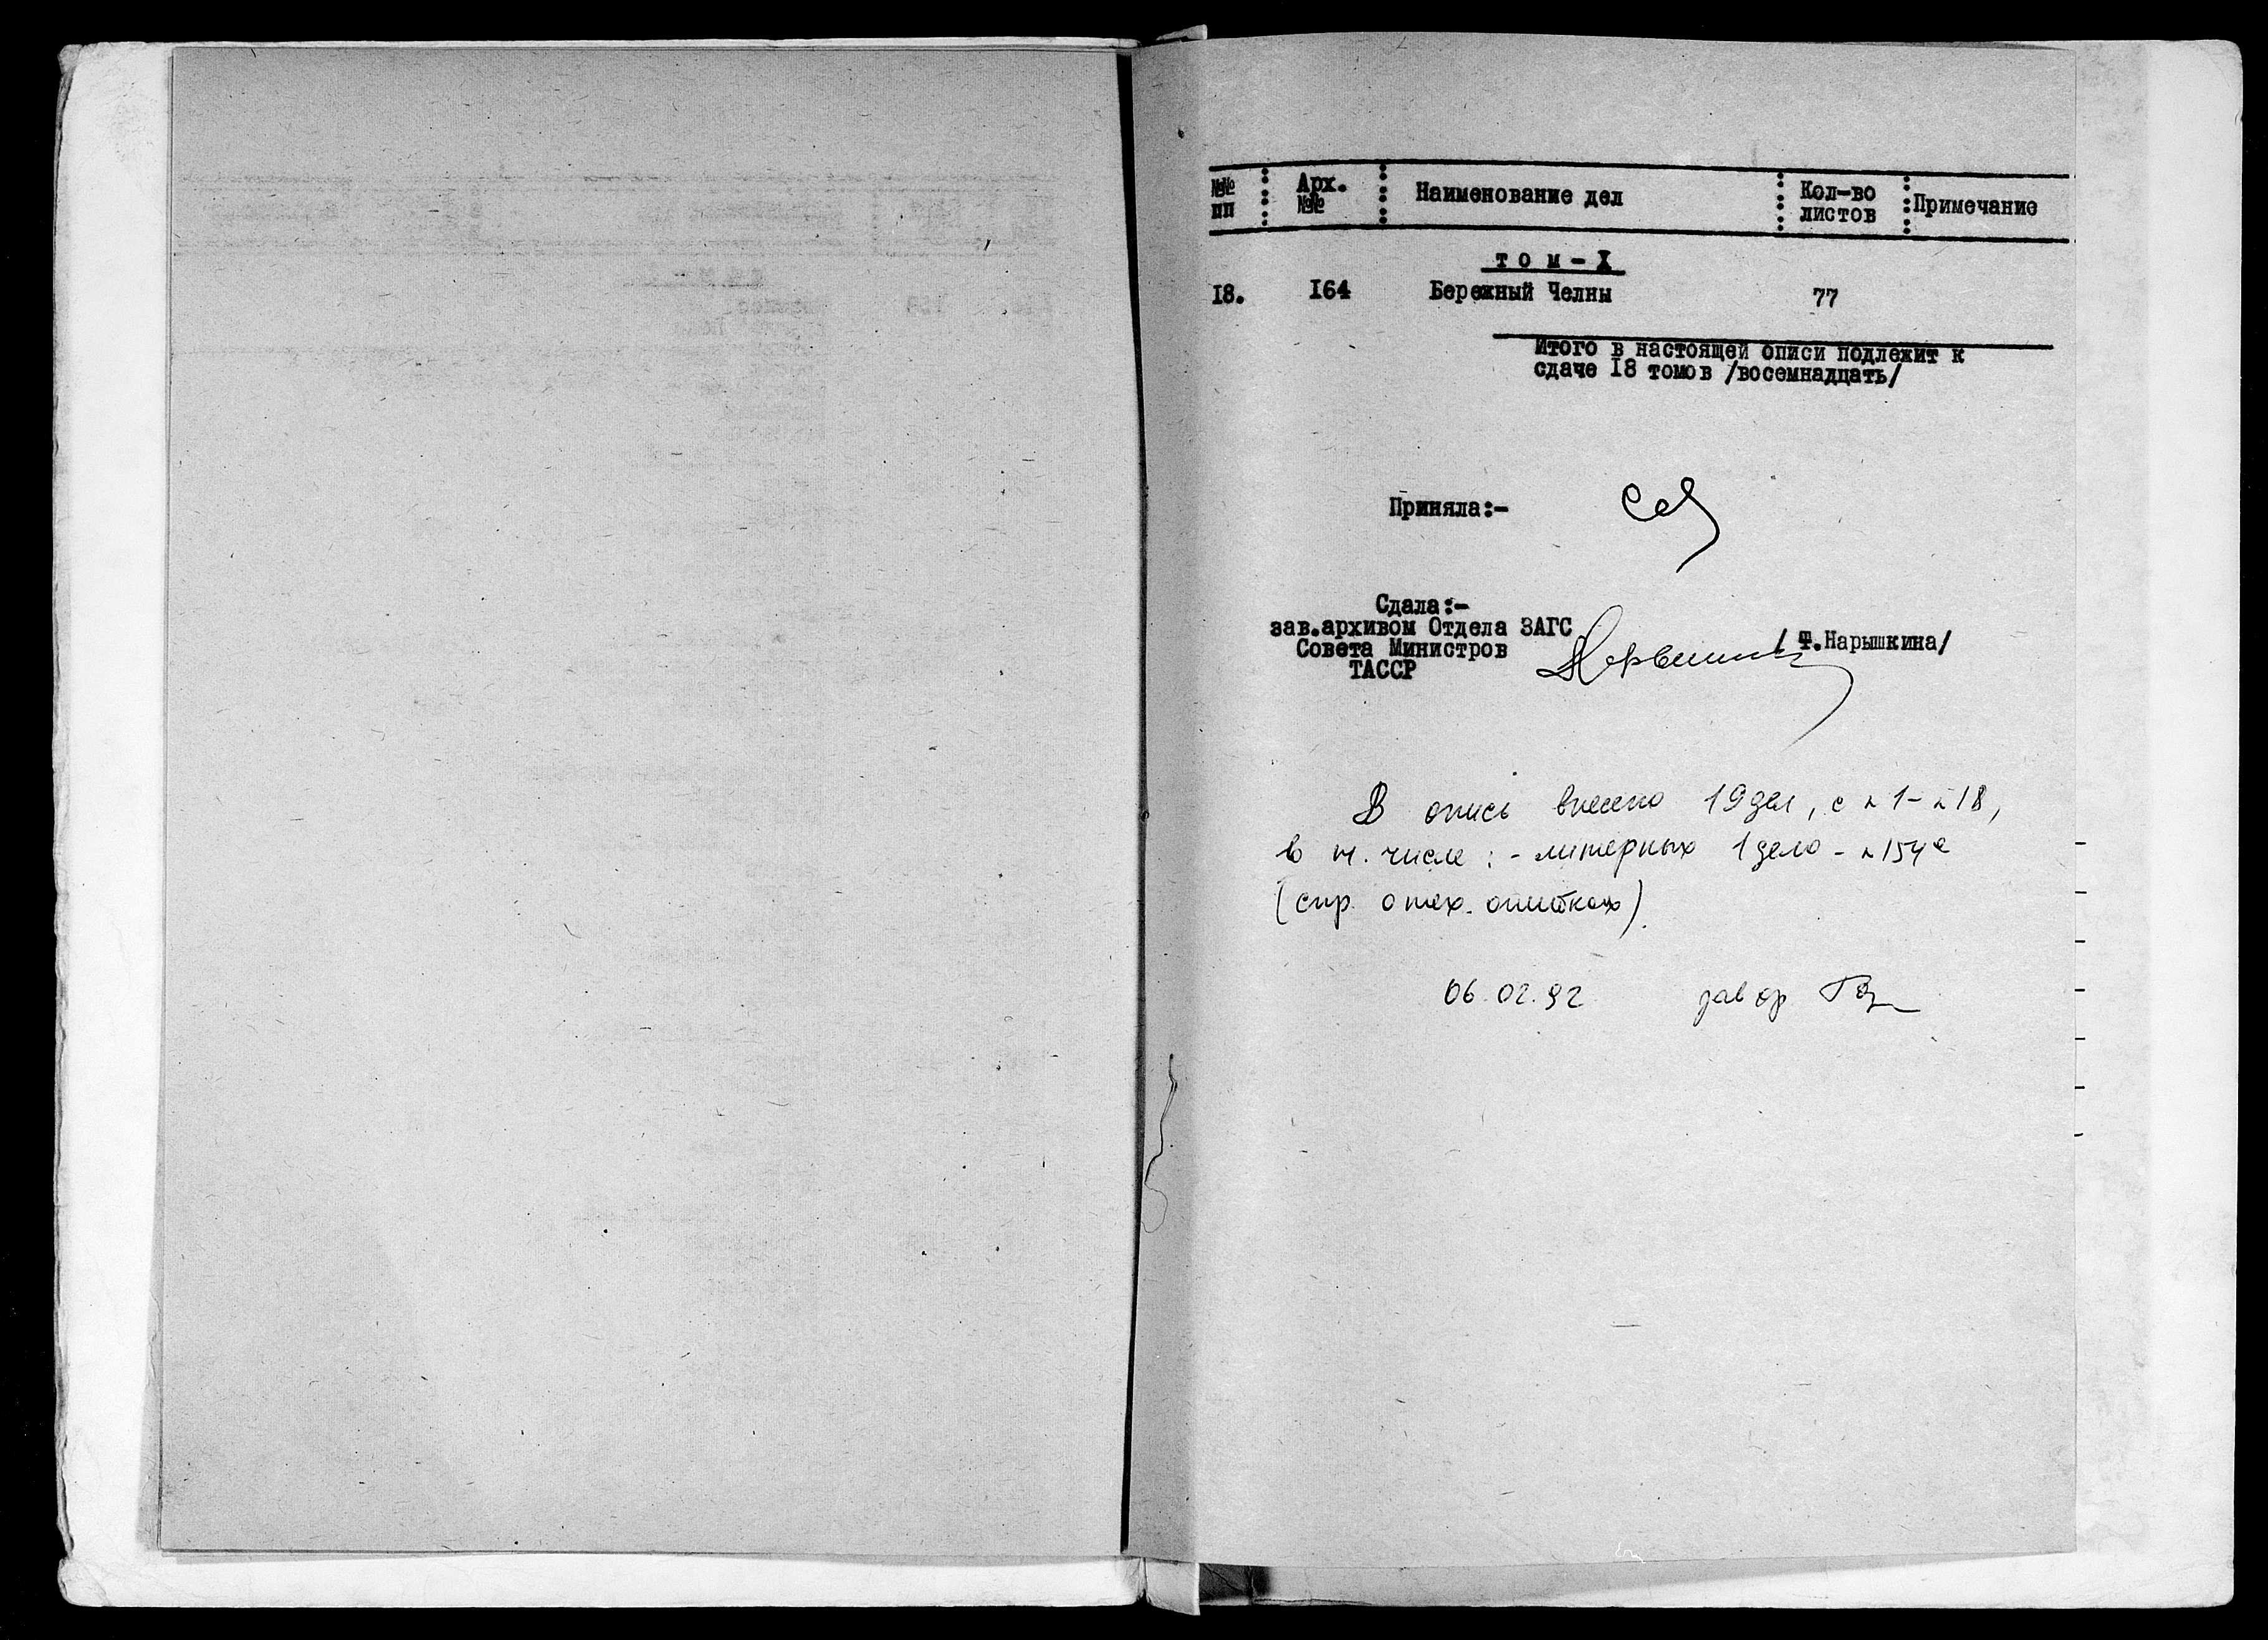 №№ пп Арх. №№ Наименование дел Кол-во листов Примечание
том-X
18. 164 Бережный Челны 77
Итого в настоящей описи подлежит к
сдаче 18 томов /восемнадцать/
Приняла:-
Сдала:-
зав.архивом Отдела ЗАГС
Совета Министров /Т.Нарышкина/
ТАССР
В опись внесено 19 дел, с № 1- № 18,
в т. числе: - литерных 1 дело - № 154а
(спр. о тех. ошибках).
06.02.92